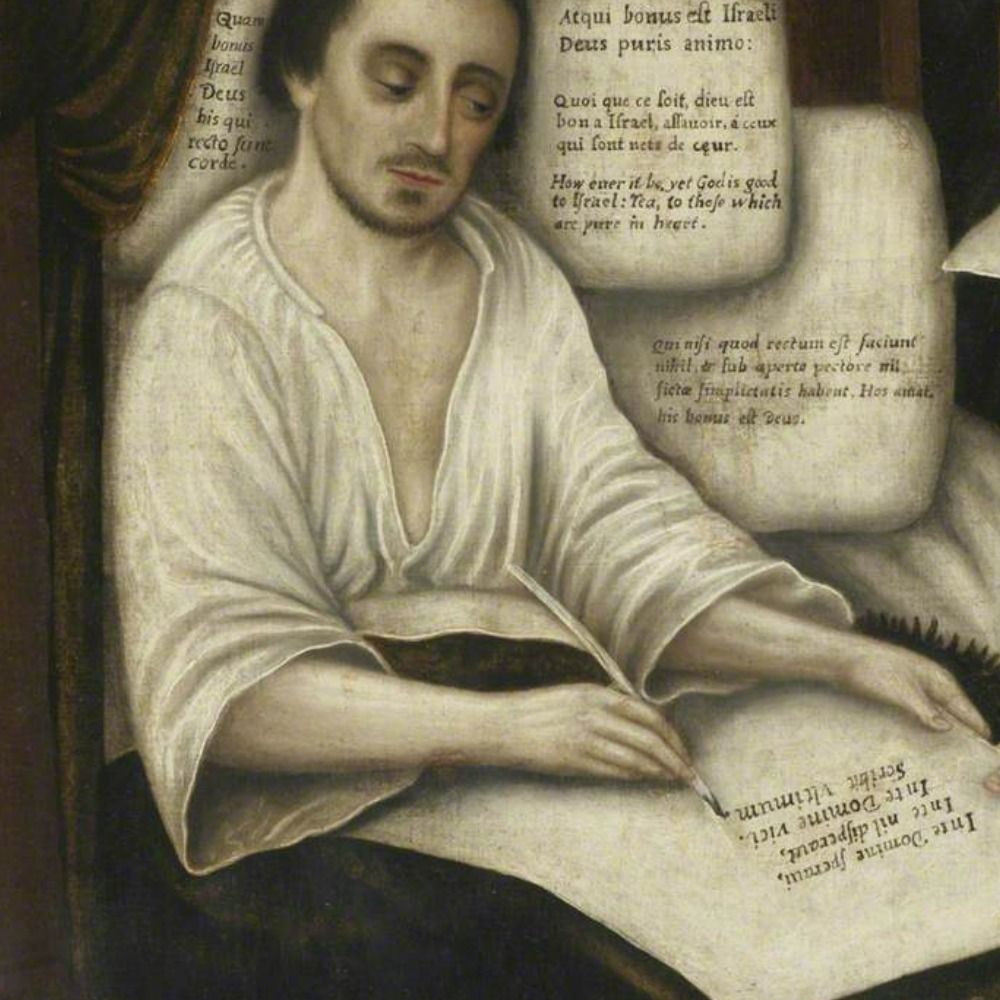 Quam
bonus
Israel
Deus
his qui
recto sunt
corde.
Atqui bonus eſt Iſraeli
Deus puris animo:
Quoi que ce ſoit, dieu eſt
bon a Iſrael, aſſauoir, á ceux
qui ſont nets de cęur.
How euer it be, yet God is good
to Iſrael: Yea, to thoſe which
are pure in heart.
Qui niſi quod rectum eſt faciunt
nihil, & ſub aperto pectore nil
fictæ ſimplicitatis habent. Hos amat,
his bonus eſt Deus.
In te Domine ſperaui,
In te nil diſperaui,
In te Domine vici.
Scribit vltimum